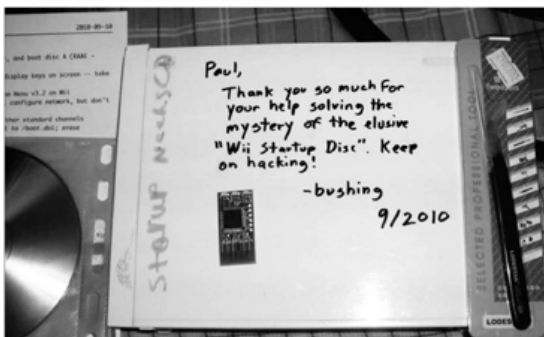 2010-09-10
, and boot disc A (RAAE -
display keys on screen -- take
en Menu v3.2 on Wii
configure network, but don't
ther standard channels
l to /boot.dol; erase
Startup
Paul,
Thank you so much for
your help solving the
mystery of the elusive
"Wii Startup Disc". Keep
on hacking!
-bushing
9/2010
SELECTED PROFESSIONAL TOOL
LODES